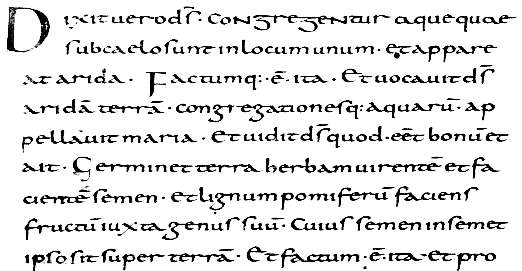 Dixit uero dς̄. congregentur aquequae
sub caelo sunt in locum unum. et appare
at arida. Factumq:. ē. ita. Et uocauit dς̄
aridā terrā. congregationesq; aquarū. ap
pellauit maria. Et uidit dς̄ quod. eēt bonū et
ait. Germinet terra herbam uirentē et fa
cientē semen. et lignum pomiferū faciens
fructū iuxta genus suū. Cuius semen in semet
ipso sit super terrā. Et factum. ē. ita. et pro